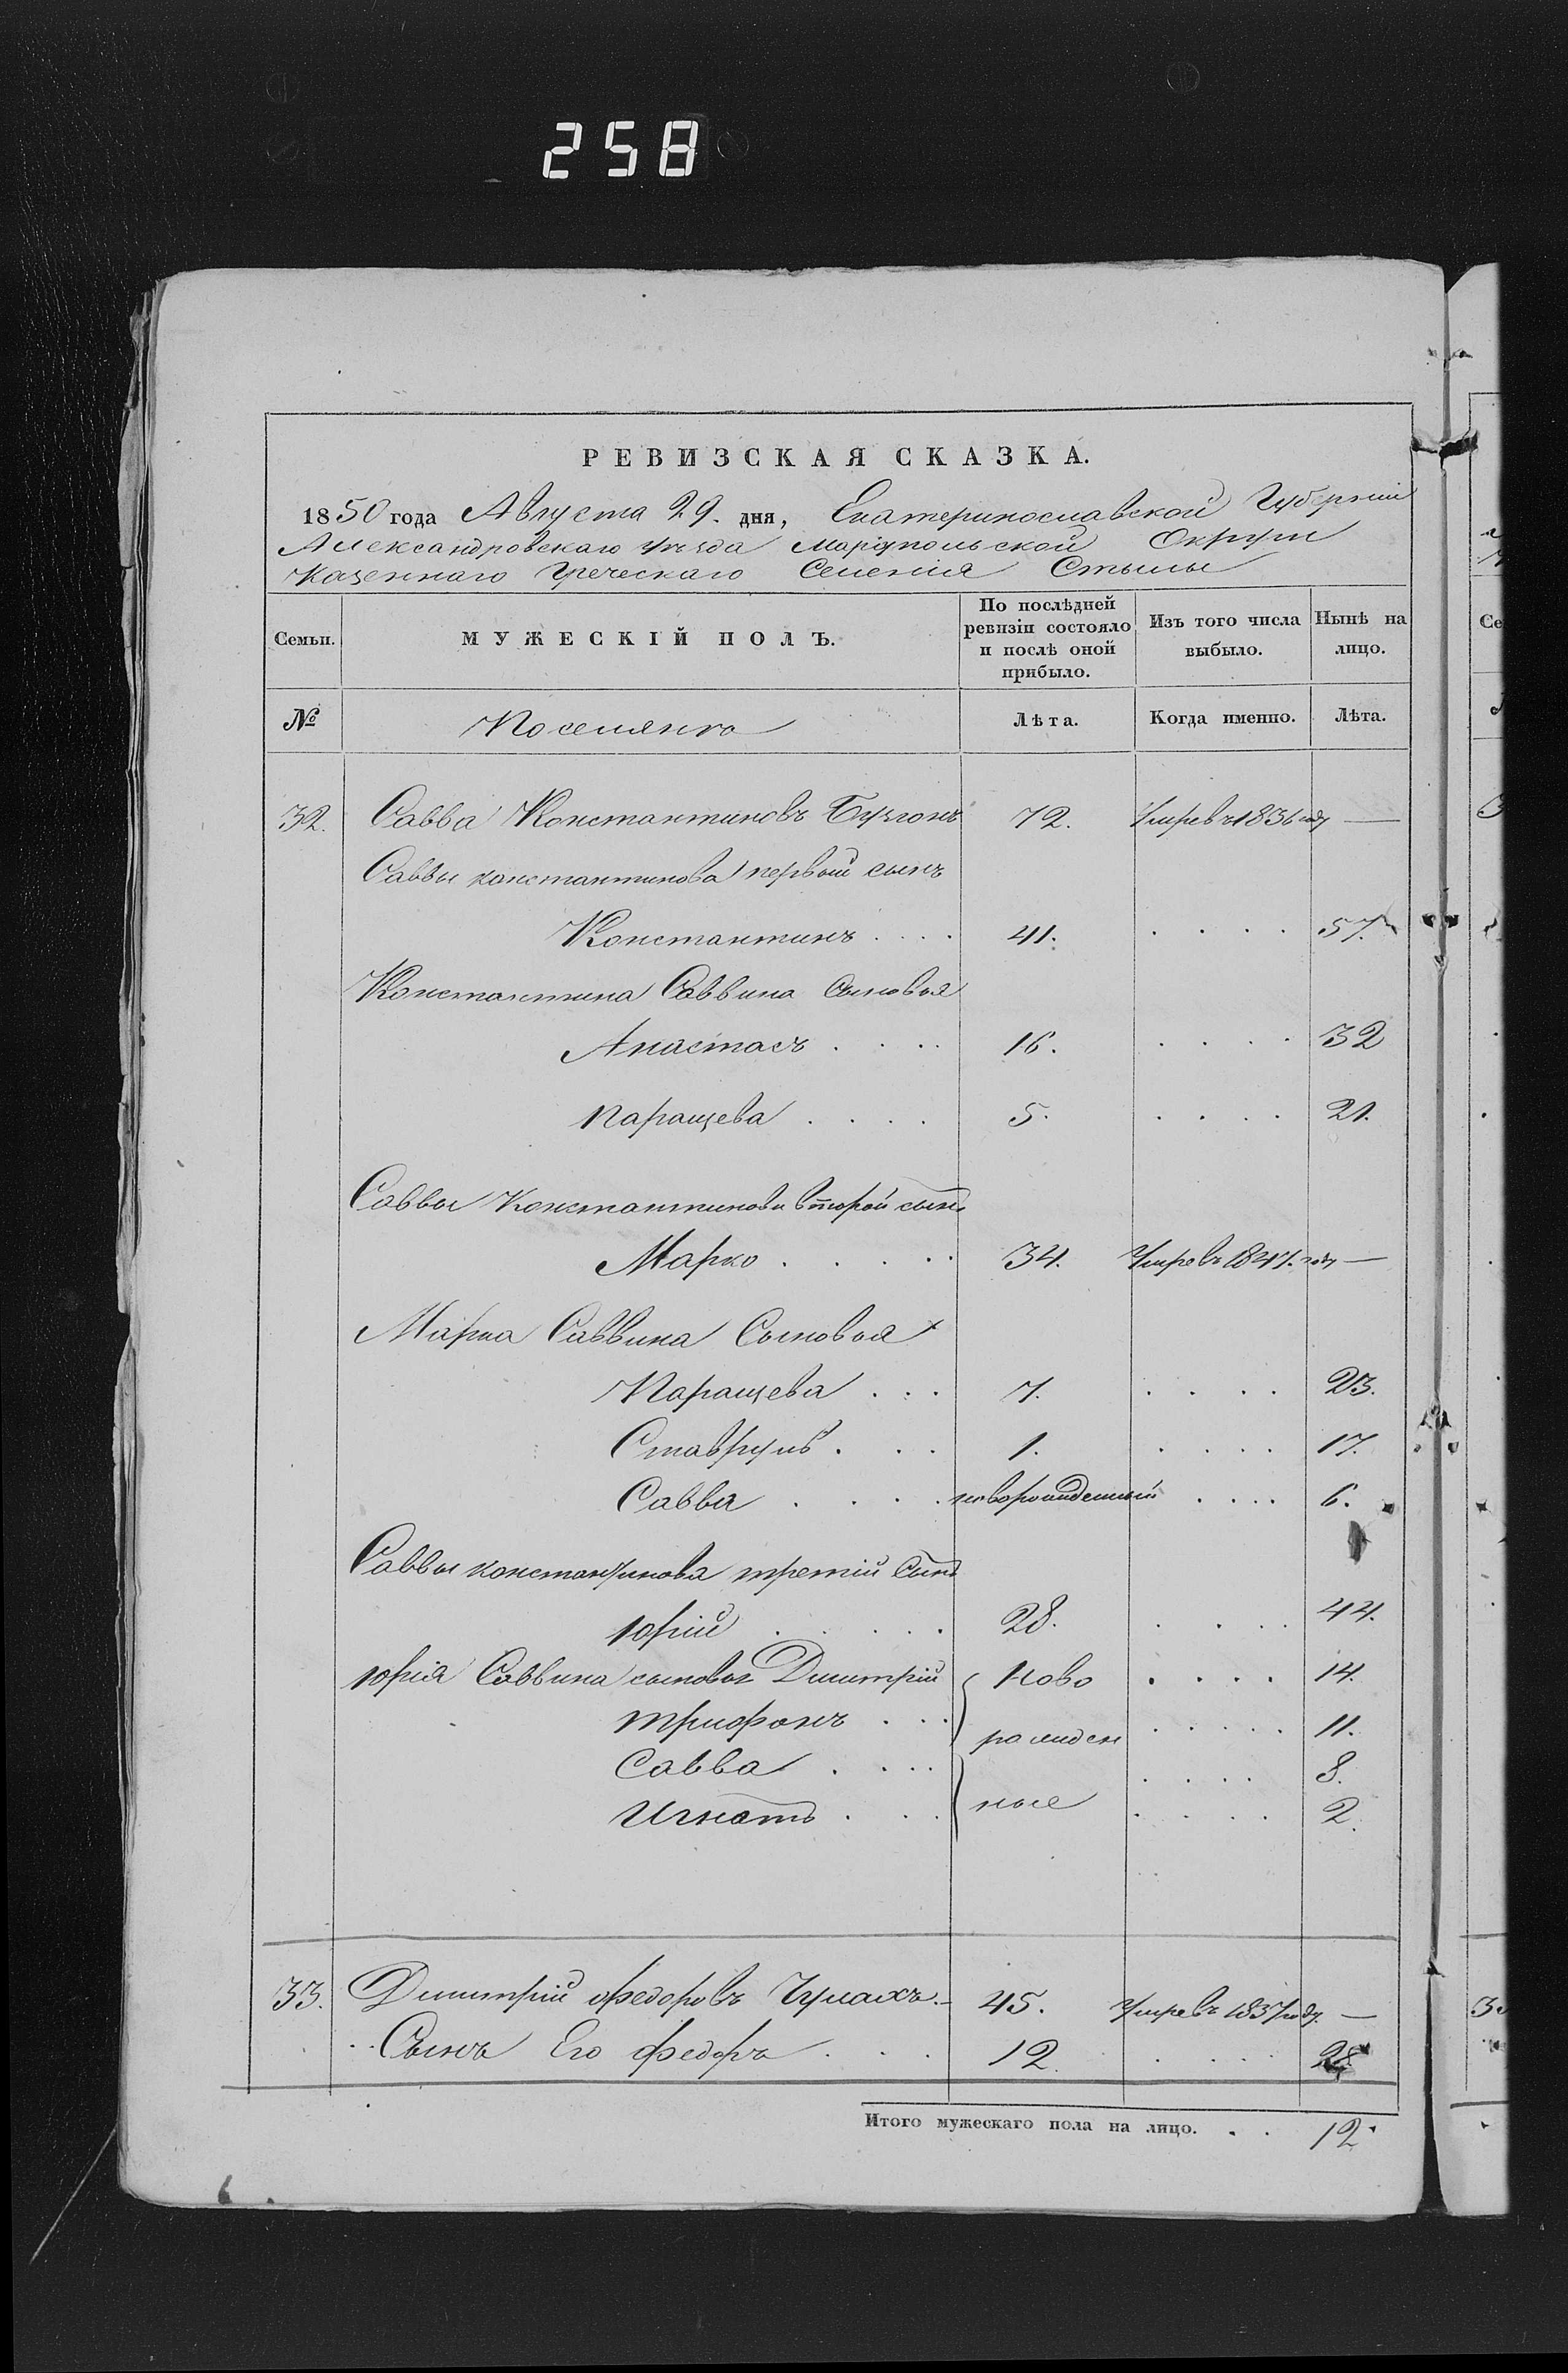 258
РЕВИЗСКАЯ СКАЗКА.
1850 года Августа 29. дня, Екатеринославской Губерніи
Александровскаго уѣзда Маріупольской Округи
Казеннаго Греческаго Селенія Стылы
Семьи. МУЖЕСКІЙ ПОЛЪ. По послѣдней ревизіи состояло и послѣ оной прибыло. Изъ того числа выбыло. Нынѣ на лицо.
№ Поселяне Лѣта. Когда именно. Лѣта.
32. Савва Константиновъ 72. Умре въ 1836 году —
Саввы константинова первый сынъ
Константинъ .... 41. .... 57.
Константина Саввина Сыновья
Анастасъ .... 16. .... 32
Паращева .... 5. .... 21.
Саввы Константинова второй сынъ
Марко ..... 34. Умре въ 1847. году —
Марка Саввина Сыновья
Паращева ... 7. .... 23.
Ставрулъ ... 1. .... 17.
Савва .... новорожденный .... 6.
Саввы константинова третій Сынъ
Юрій ..... 28. .... 44.
Юрія Саввина сыновья Димитрій Ново .... 14.
Трифонъ ... рожден ..... 11.
Савва .... .... 8.
Игнатъ ... ные .... 2.
33. Димитрій Федоровъ Чумахъ. 45. Умре въ 1837 году. —
Сынъ Его Федоръ ... 12. .... 28
Итого мужескаго пола на лицо. . . 12.